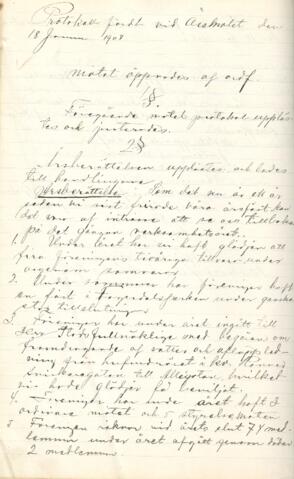 Protokoll fördt vid Årsmötet den
18 Januari 1908
mötet öppnades af ordf.
1§
Föregående mötet protokol uppläs-
tes och justerades.
2§
Årsberättelsen upplästes och lades
till handlingarna
Årsberättelse. Som det nu är ett år
sedan vi sist firade våra årsfäst kan
det vara af intresse att se oss tillbaka
på det gångna verksamhetsåret.
1. Under året har vi haft glädjen att
fira föreningens tioåriga tillvaro under
samvaro
2. Under sommaren har föreningen haft
en fäst i parken under ganska
stor tillslutning
3. Föreningen har under året ingått till
Herr Stadsfullmäktige med begäran om
framdragande af vatten och aflopsled-
ning från
gatan till hvilket
vi hade glädjen få beviljat.
4. Föreningen har under året haft 3
ordinarie möten och 5 styrelsemöten
5 Föreningen räknar vid årets slut 74 med-
lemmar under året afgått genom döden
2 medlemmar.